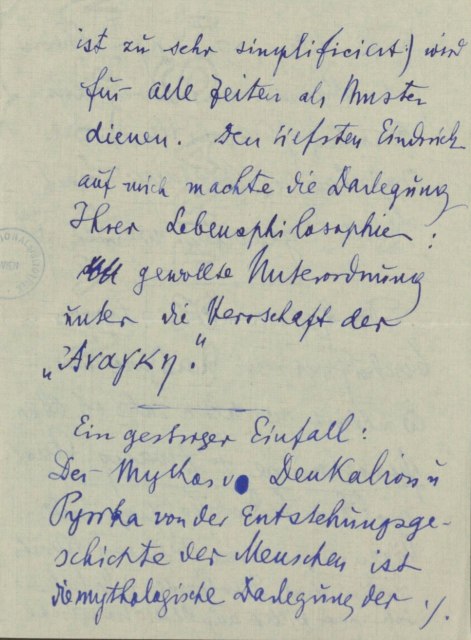 ist zu sehr simplificiert) wird
für alle Zeiten als Muster
dienen. Den tiefsten Eindruck
auf mich machte die Darlegung
Ihrer Lebensphilosophie:
gewollte Unterordnung
unter die Herrschaft der
„Αναγκη."
Ein gestriger Einfall:
Der Mythos v. Deukalion u
Pyrrha von der Entstehungsge-
schichte der Menschen ist
die mythologische Darlegung der ./.